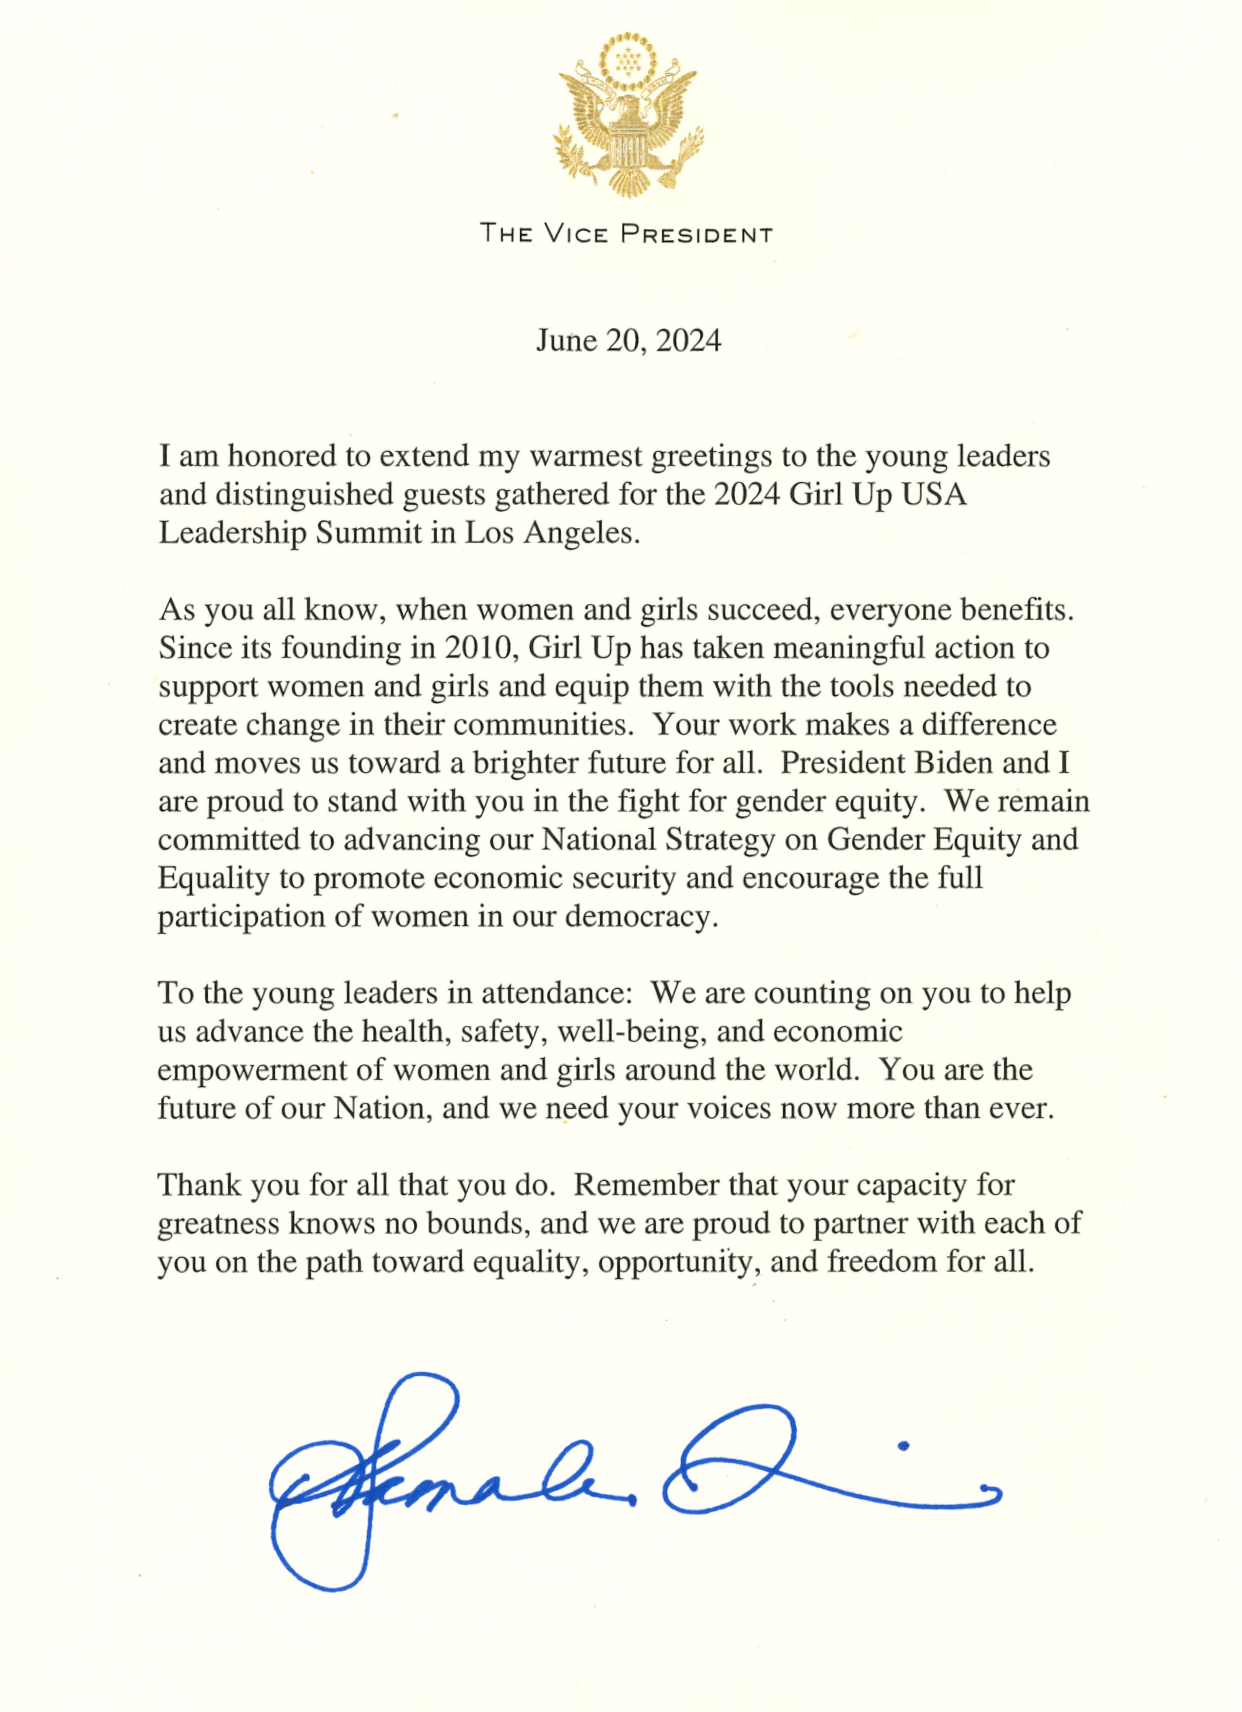 THE VICE PRESIDENT
June 20, 2024
I am honored to extend my warmest greetings to the young leaders
and distinguished guests gathered for the 2024 Girl Up USA
Leadership Summit in Los Angeles.
As you all know, when women and girls succeed, everyone benefits.
Since its founding in 2010, Girl Up has taken meaningful action to
support women and girls and equip them with the tools needed to
create change in their communities.  Your work makes a difference
and moves us toward a brighter future for all.  President Biden and I
are proud to stand with you in the fight for gender equity.  We remain
committed to advancing our National Strategy on Gender Equity and
Equality to promote economic security and encourage the full
participation of women in our democracy.
To the young leaders in attendance:  We are counting on you to help
us advance the health, safety, well-being, and economic
empowerment of women and girls around the world.  You are the
future of our Nation, and we need your voices now more than ever.
Thank you for all that you do.  Remember that your capacity for
greatness knows no bounds, and we are proud to partner with each of
you on the path toward equality, opportunity, and freedom for all.
Kamala